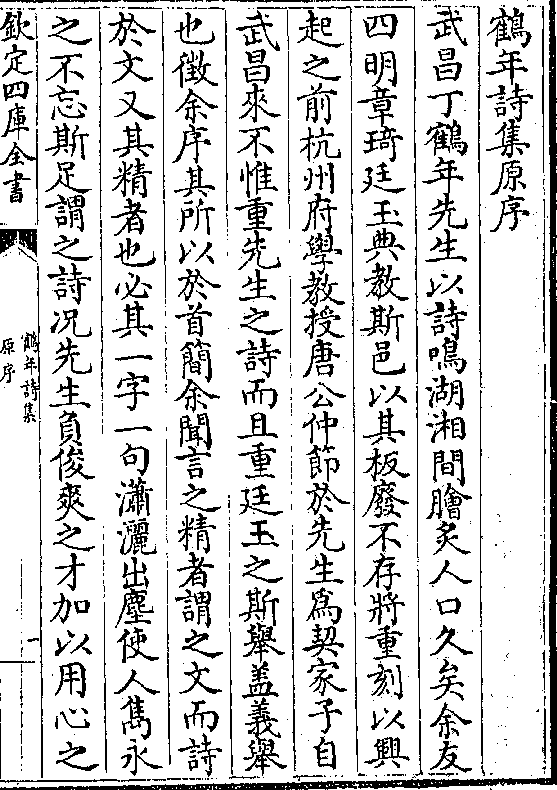 鶴年詩集原序
武昌丁鶴年先生以詩鳴湖湘間膾炙人口久矣余友
四明章琦廷玉典教斯邑以其板廢不存將重刻以興
起之前杭州府學教授唐公仲節於先生爲契家子自
武昌來不惟重先生之詩而且重廷玉之斯舉盖義舉
也徵余序其所以於首簡余聞言之精者謂之文而詩
於文又其精者也必其一字一句瀟灑出塵使人雋永
之不忘斯足謂之詩况先生負俊爽之才加以用心之
欽定四庫全書
鶴年詩集
原序
一